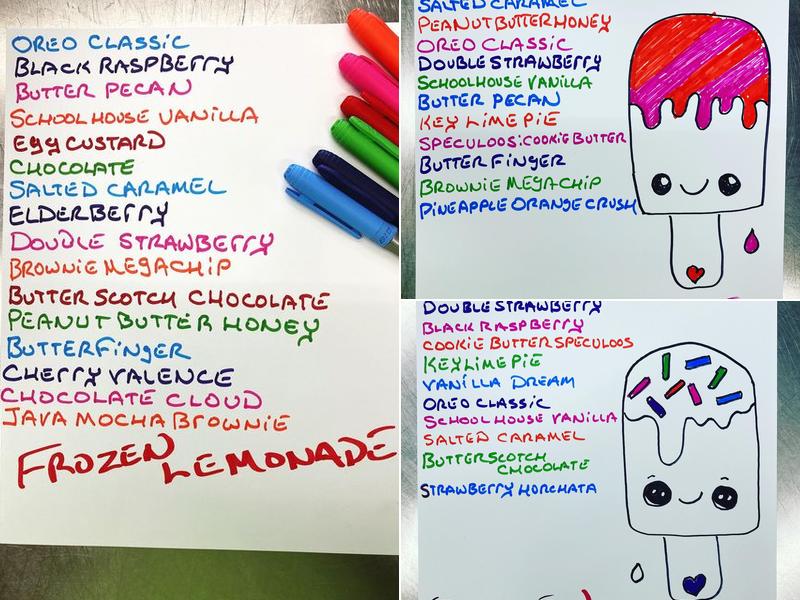 OREO CLASSIC
BLACK RASPBERRY
BUTTER PECAN
SCHOOLHOUSE VANILLA
EGG CUSTARD
CHOCOLATE
SALTED CARAMEL
ELDERBERRY
DOUBLE STRAWBERRY
BROWNIE MEGACHIP
BUTTERSCOTCH CHOCOLATE
PEANUT BUTTER HONEY
BUTTERFINGER
CHERRY VALENCE
CHOCOLATE CLOUD
JAVA MOCHA BROWNIE
FROZEN LEMONADE
SALTED CARAMEL
PEANUT BUTTER HONEY
OREO CLASSIC
DOUBLE STRAWBERRY
SCHOOLHOUSE VANILLA
BUTTER PECAN
KEY LIME PIE
SPECULOOS:COOKIE BUTTER
BUTTERFINGER
BROWNIE MEGACHIP
PINEAPPLE ORANGE CRUSH
DOUBLE STRAWBERRY
BLACK RASPBERRY
COOKIE BUTTER SPECULOOS
KEY LIME PIE
VANILLA DREAM
OREO CLASSIC
SCHOOLHOUSE VANILLA
SALTED CARAMEL
BUTTERSCOTCH
CHOCOLATE
STRAWBERRY HORCHATA